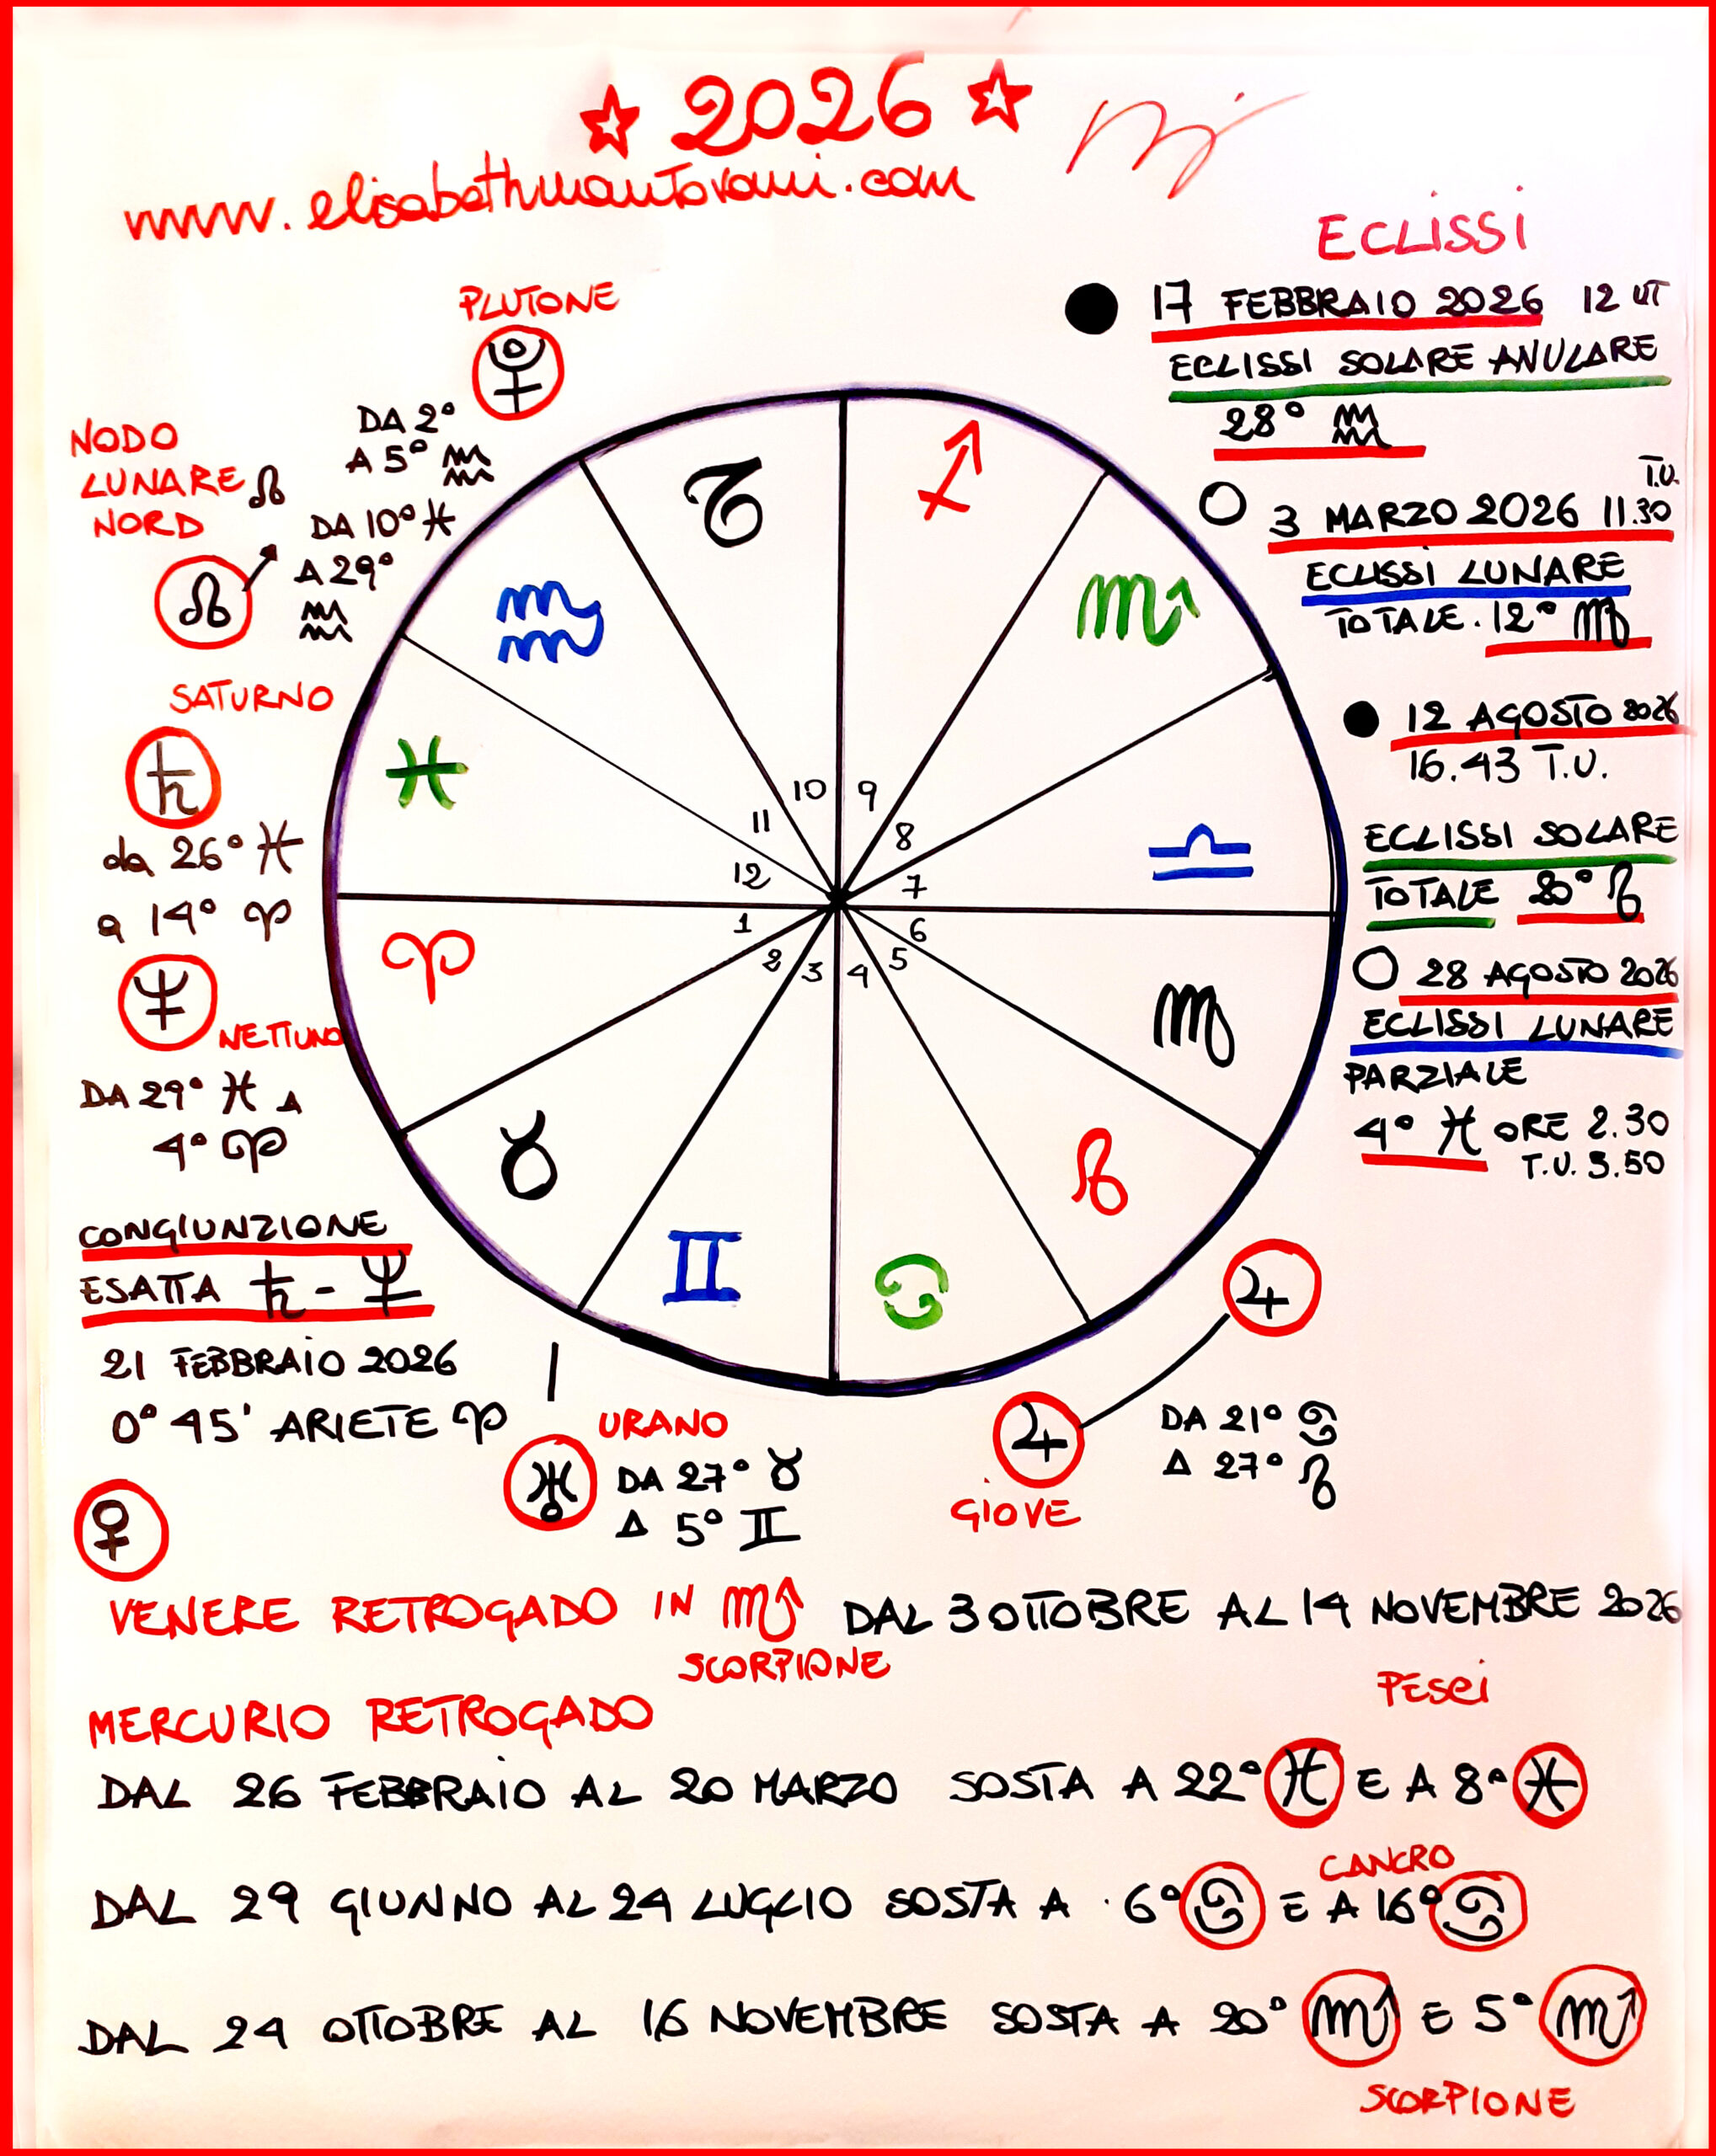 ☆ 2026 ☆
www.elisabethmantovani.com
ECLISSI
● 17 FEBBRAIO 2026 12 UT
ECLISSI SOLARE ANULARE
28° ♒
○ 3 MARZO 2026 11.30 T.U.
ECLISSI LUNARE
TOTALE. 12° ♍
● 12 AGOSTO 2026
16.43 T.U.
ECLISSI SOLARE
TOTALE 20° ♌
○ 28 AGOSTO 2026
ECLISSI LUNARE
PARZIALE
4° ♓ ORE 2.30
T.U. 3.50
PLUTONE
♇
DA 2°
A 5° ♒
NODO
LUNARE ☊
NORD
☊
DA 10° ♓
A 29°
♒
SATURNO
♄
da 26° ♓
a 14° ♈
♆
NETTUNO
DA 29° ♓ A
4° ♈
CONGIUNZIONE
ESATTA ♄ - ♆
21 FEBBRAIO 2026
0° 45' ARIETE ♈
♑ ♐
♒ ♏
♓ ♎
♈ ♍
♉ ♌
♊ ♋
10 9
11 8
12 7
1 6
2 3 4 5
URANO
♅ DA 27° ♉
A 5° ♊
♃
♃
GIOVE
DA 21° ♋
A 27° ♌
♀
VENERE RETROGADO IN ♏ DAL 3 OTTOBRE AL 14 NOVEMBRE 2026
SCORPIONE
MERCURIO RETROGADO
PESCI
DAL 26 FEBBRAIO AL 20 MARZO SOSTA A 22° ♓ E A 8° ♓
CANCRO
DAL 29 GIUNNO AL 24 LUGLIO SOSTA A 6° ♋ E A 16° ♋
DAL 24 OTTOBRE AL 16 NOVEMBRE SOSTA A 20° ♏ E 5° ♏
SCORPIONE